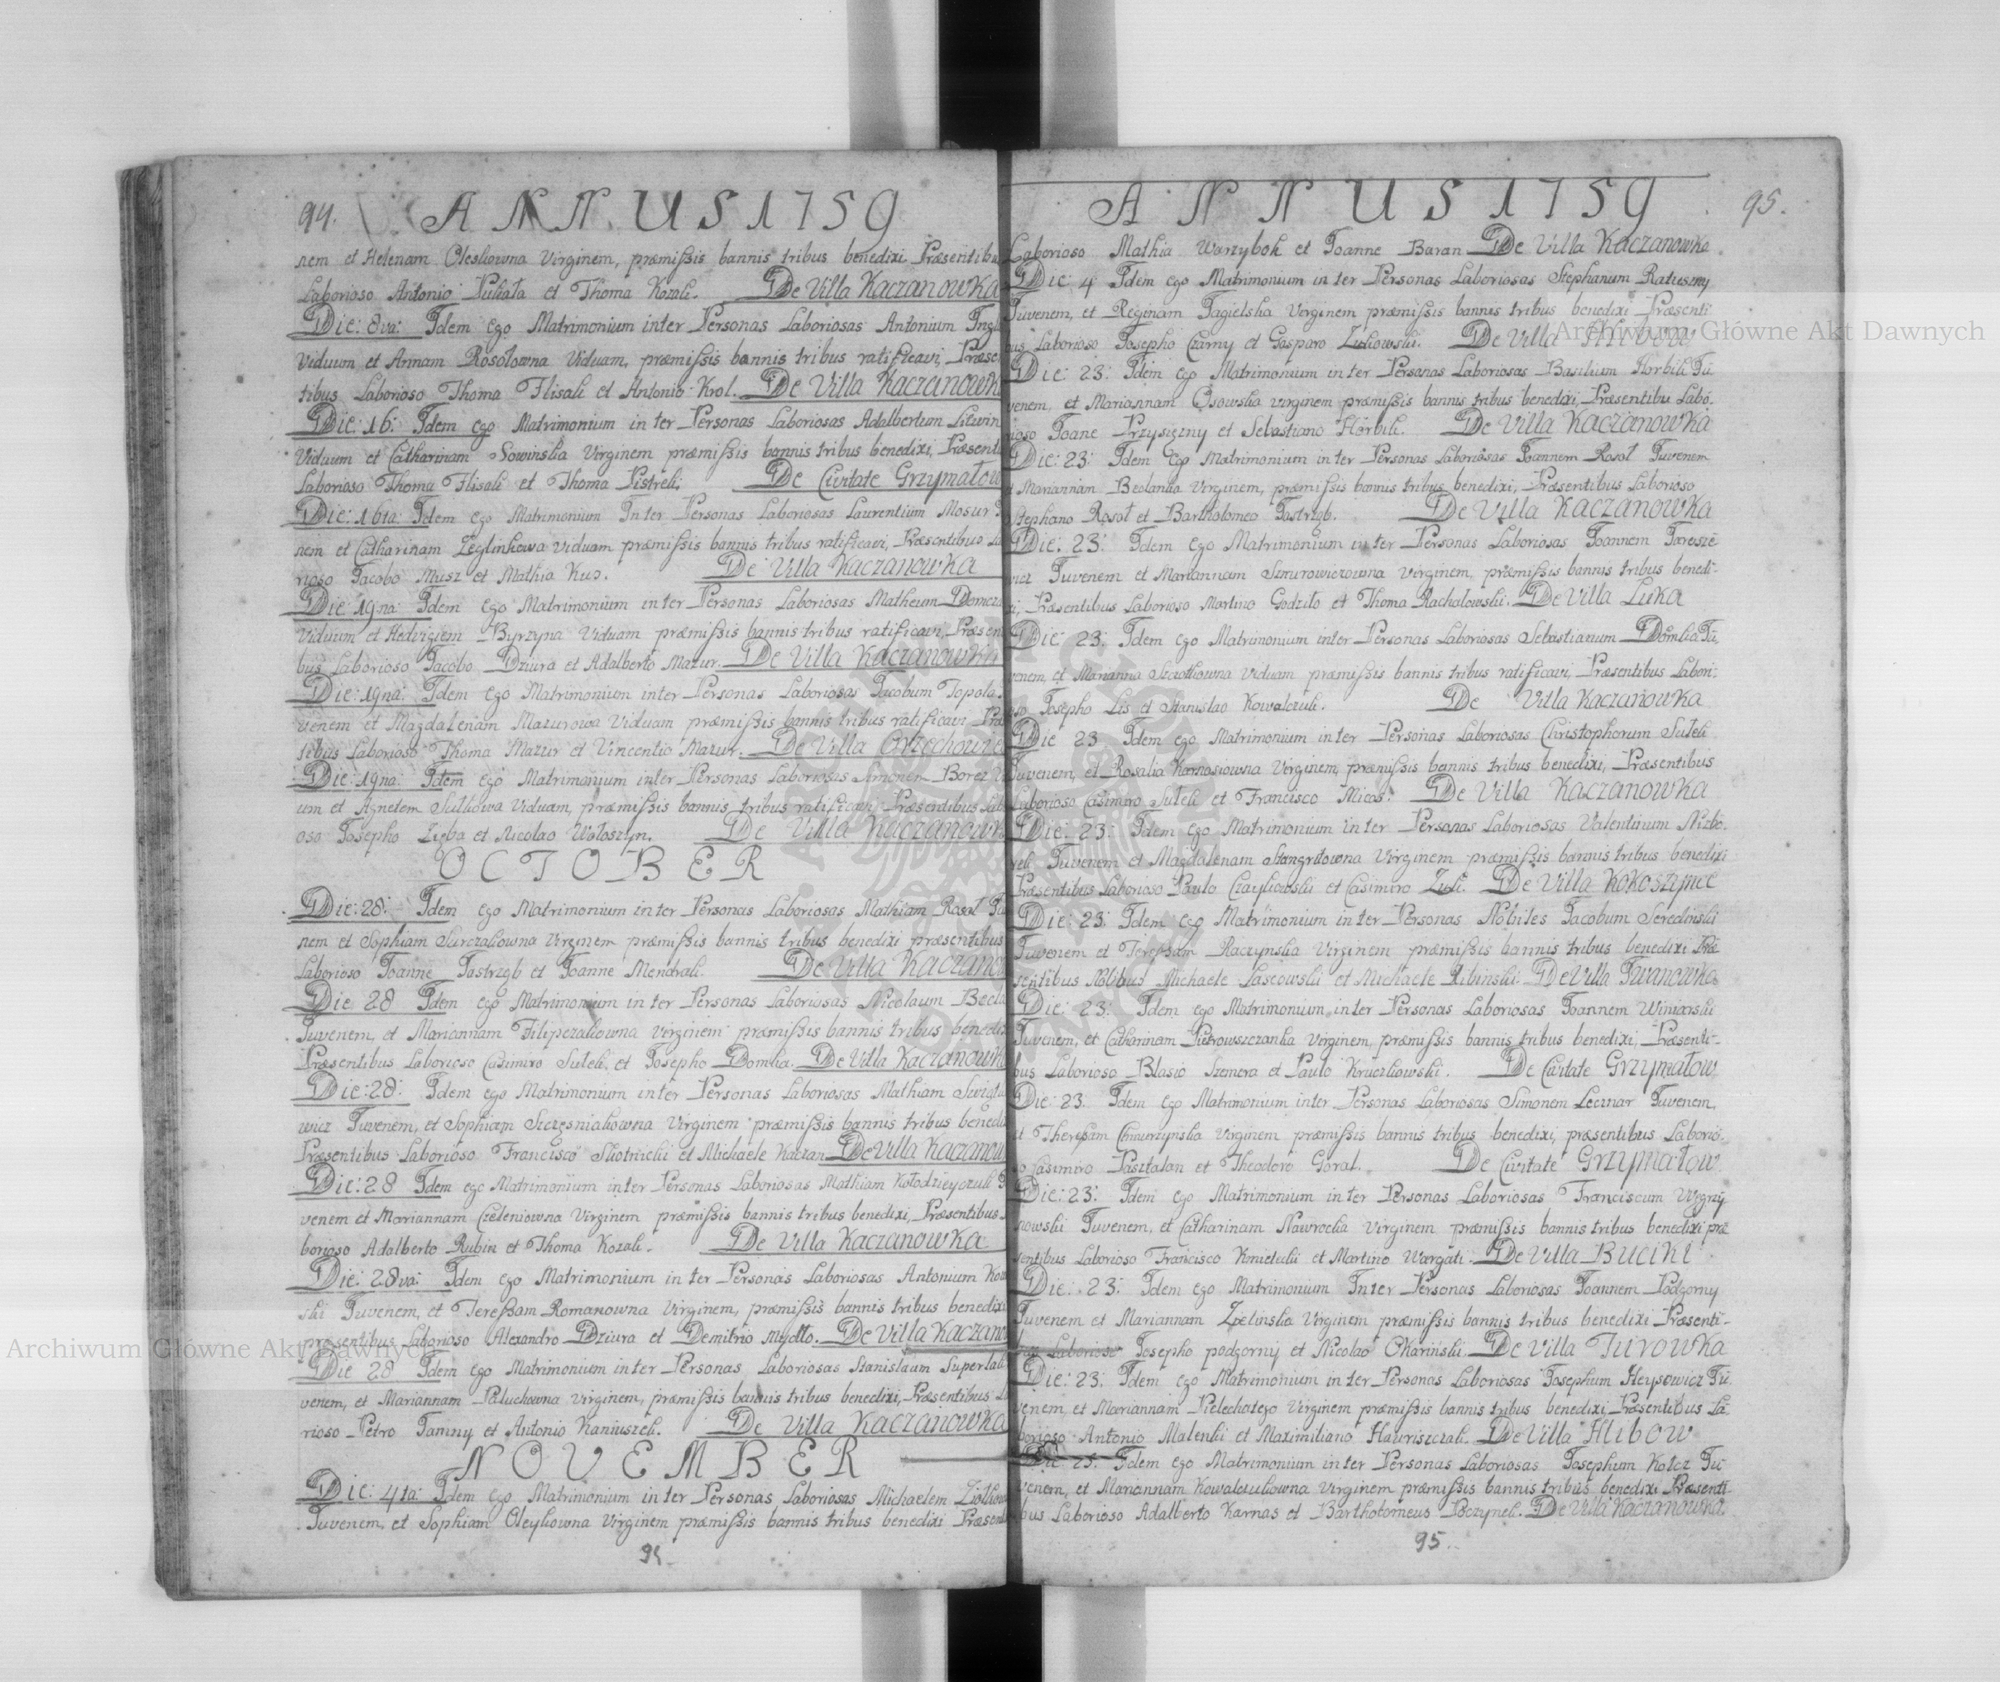 94. ANNUS 1759
nem et Helenam Oleskowna Virginem, præmissis bannis tribus benedixi Præsentibus
Laborioso Antonio Puliata et Thoma Kozak. De Villa Kaczanowka
Die: 8va: Idem ego Matrimonium inter Personas Laboriosas Antonium
Viduum et Annam Rosołowna Viduam, præmissis bannis tribus ratificavi, Præse
tibus Laborioso Thoma Flisak et Antonio Krol. De Villa Kaczanowka
Die: 16: Idem ego Matrimonium inter Personas Laboriosas Adalbertum Litwin
Viduum et Catharinam Sowinska Virginem præmissis bannis tribus benedixi, Præsenti
Laborioso Thoma Flisak et Thoma Pistrek. De Civitate Grzymałow
Die: 16ta: Idem ego Matrimonium Inter Personas Laboriosas Laurentium Mosur
nem et Catharinam Zeglinkowa Viduam præmissis bannis tribus ratificavi, Præsentibus La
rioso Jacobo Musz et Mathia Kus. De Villa Kaczanowka
Die 19na: Idem ego Matrimonium inter Personas Laboriosas Matheum
Viduum et Hedvigem Byrzyna Viduam præmissis bannis tribus ratificavi, Præsen
bus Laborioso Jacobo Dziura et Adalberto Mazur. De Villa Kaczanowka
Die: 19na: Idem ego Matrimonium inter Personas Laboriosas Jacobum Topola
venem et Magdalenam Mazurowa Viduam præmissis bannis tribus ratificavi Præ
tibus Laborioso Thoma Mazur et Vincentio Mazur. De Villa Orzechowiec
Die: 19na: Idem ego Matrimonium inter Personas Laboriosas Simonem Borez Vi
um et Agnetem Sulkowa Viduam, præmissis bannis tribus ratificavi, Præsentibus Lab
oso Josepho Zięba et Nicolao Wołoszyn. De Villa Kaczanowka
OCTOBER
Die: 28: Idem ego Matrimonium inter Personas Laboriosas Mathiam Rosoł Ju
nem et Sophiam Surczakowna Virginem præmissis bannis tribus benedixi præsentibus
Laborioso Joanne Jastrzgb et Joanne Mendrak. De Villa Kaczanow
Die 28 Idem ego Matrimonium inter Personas Laboriosas Nicolaum
Juvenem, et Mariannam Filipczakowna Virginem præmissis bannis tribus benedixi
Præsentibus Laborioso Casimiro Sutek, et Josepho Domka. De Villa Kaczanowka
Die: 28: Idem ego Matrimonium inter Personas Laboriosas Mathiam
wicz Juvenem, et Sophiam Szczęsniakowna Virginem præmissis bannis tribus benedi
Præsentibus Laborioso Francisco Skotnicki et Michaele Kaczan De Villa Kaczanow
Die: 28 Idem ego Matrimonium inter Personas Laboriosas Mathiam Kołodzieyczuk Ju
venem et Mariannam Czeleniowna Virginem præmissis bannis tribus benedixi, Præsentibus
borioso Adalberto Rubin et Thoma Kozak. De Villa Kaczanowka
Die: 28va: Idem ego Matrimonium inter Personas Laboriosas Antonium
ski Juvenem, et Teressam Romanowna Virginem, præmissis bannis tribus benedixi
præsentibus Laborioso Alexandro Dziura et Demitrio Mydło. De Villa Kaczano
Die 28 Idem ego Matrimonium inter Personas, Laboriosas Stanislaum Superlak
venem, et Mariannam Paluchowna Virginem, præmissis bannis tribus benedixi, Præsentibus La
rioso Petro Jamny et Antonio Kaniuszek. De Villa Kaczanowka
NOVEMBER
Die: 4ta: Idem ego Matrimonium inter Personas Laboriosas Michaelem
Juvenem, et Sophiam Oleykowna Virginem præmissis bannis tribus benedixi Præsent
94
ANNUS 1759 95.
Laborioso Mathia Warzybok et Joanne Baran De Villa Kaczanowka
Die: 4 Idem ego Matrimonium inter Personas Laboriosas Stephanum Ratuszny
Juvenem, et Reginam Jagielska Virginem præmissis bannis tribus benedixi Præsenti
bus Laborioso Josepho Czarny et Gasparo Zukowski. De Villa Hlibow
Die: 23: Idem ego Matrimonium inter Personas Laboriosas Basilium Horbik Ju
venem, et Mariannam Osowska Virginem præmissis bannis tribus benedixi, Præsentibu Labo.
rioso Joane Przysięzny et Sebastiano Horbik. De Villa Kaczanowka
Die: 23: Idem ego Matrimonium inter Personas Laboriosas Joannem Rosoł Juvenem
et Mariannam Virginem, præmissis bannis tribus benedixi, Præsentibus Laborioso
Stephano Rosoł et Bartholomeo Jastrzgb. De Villa Kaczanowka
Die: 23: Idem ego Matrimonium inter Personas Laboriosas Joannem Jaresze
wicz Juvenem et Mariannam Smurowiczowna Virginem, præmissis bannis tribus benedi-
xi, Præsentibus Laborioso Martino Godziło et Thoma Rachałowski. De Villa Luka
Die: 23: Idem ego Matrimonium inter Personas Laboriosas Sebastianum Domka Ju.
venem, et Marianna Viduam præmissis bannis tribus ratificavi, Præsentibus Labori:
so Josepho Lis et Stanislao Kowalczuk. De Villa Kaczanowka
Die 23 Idem ego Matrimonium inter Personas Laboriosas Christophorum Sutek
Juvenem, et Rosalia Karnasiowna Virginem, præmissis bannis tribus benedixi, Præsentibus
Laborioso Casimiro Sutek et Francisco Micas. De Villa Kaczanowka
Die: 23: Idem ego Matrimonium inter Personas Laboriosas Valentinum Nizbo.
rek Juvenem et Magdalenam Stangritowna Virginem præmissis bannis tribus benedixi
Præsentibus Laborioso Paulo Czaykowski et Casimiro Zuk. De Villa Kokoszynce
Die: 23: Idem ego Matrimonium inter Personas Nobiles Jacobum Seredinski
Juvenem et Teressam Raczynska Virginem præmissis bannis tribus benedixi Præ
sentibus Nobilibus Michaele Lascowski et Michaele Ribinski. De Villa Iwanowka
Die: 23: Idem ego Matrimonium inter Personas Laboriosas Joannem Winiarski
Juvenem, et Catharinam Pietrowszczanka Virginem, præmissis bannis tribus benedixi, Præsenti-
bus Laborioso Blasio Szemera et Paulo Kruczkowski. De Civitate Grzymałow
Die: 23. Idem ego Matrimonium inter Personas Laboriosas Simonem Lecznar Juvenem,
et Theresam Chmurzynska Virginem præmissis bannis tribus benedixi, præsentibus Laborio-
so Casimiro Pasztalan et Theodoro Goral. De Civitate Grzymałow
Die: 23: Idem ego Matrimonium inter Personas Laboriosas Franciscum Węgrzy
nowski Juvenem, et Catharinam Nawrocka Virginem præmissis bannis tribus benedixi præ
sentibus Laborioso Francisco Kmietuk et Martino Wargati. De Villa Buciki
Die: 23: Idem ego Matrimonium Inter Personas Laboriosas Joannem Podgorny
Juvenem et Mariannam Zielinska Virginem præmissis bannis tribus benedixi Præsenti-
bus Laborioso Josepho podgorny et Nicolao Okarinski. De Villa Turowka
Die: 23: Idem ego Matrimonium inter Personas Laboriosas Josephum Heysowicz Ju.
venem, et Mariannam Virginem præmissis bannis tribus benedixi Præsentibus La-
borioso Antonio Malenki et Maximiliano Hawriszczak. De Villa Hlibow
Die 25: Idem ego Matrimonium inter Personas Laboriosas Josephum Kołcz Ju
venem, et Mariannam Kowalczukowna Virginem præmissis bannis tribus benedixi Præsenti
bus Laborioso Adalberto Karnas et Bartholomeus Poczynek. De Villa Kaczanowka
95
Archiwum Główne Akt Dawnych
Archiwum Główne Akt Dawnych